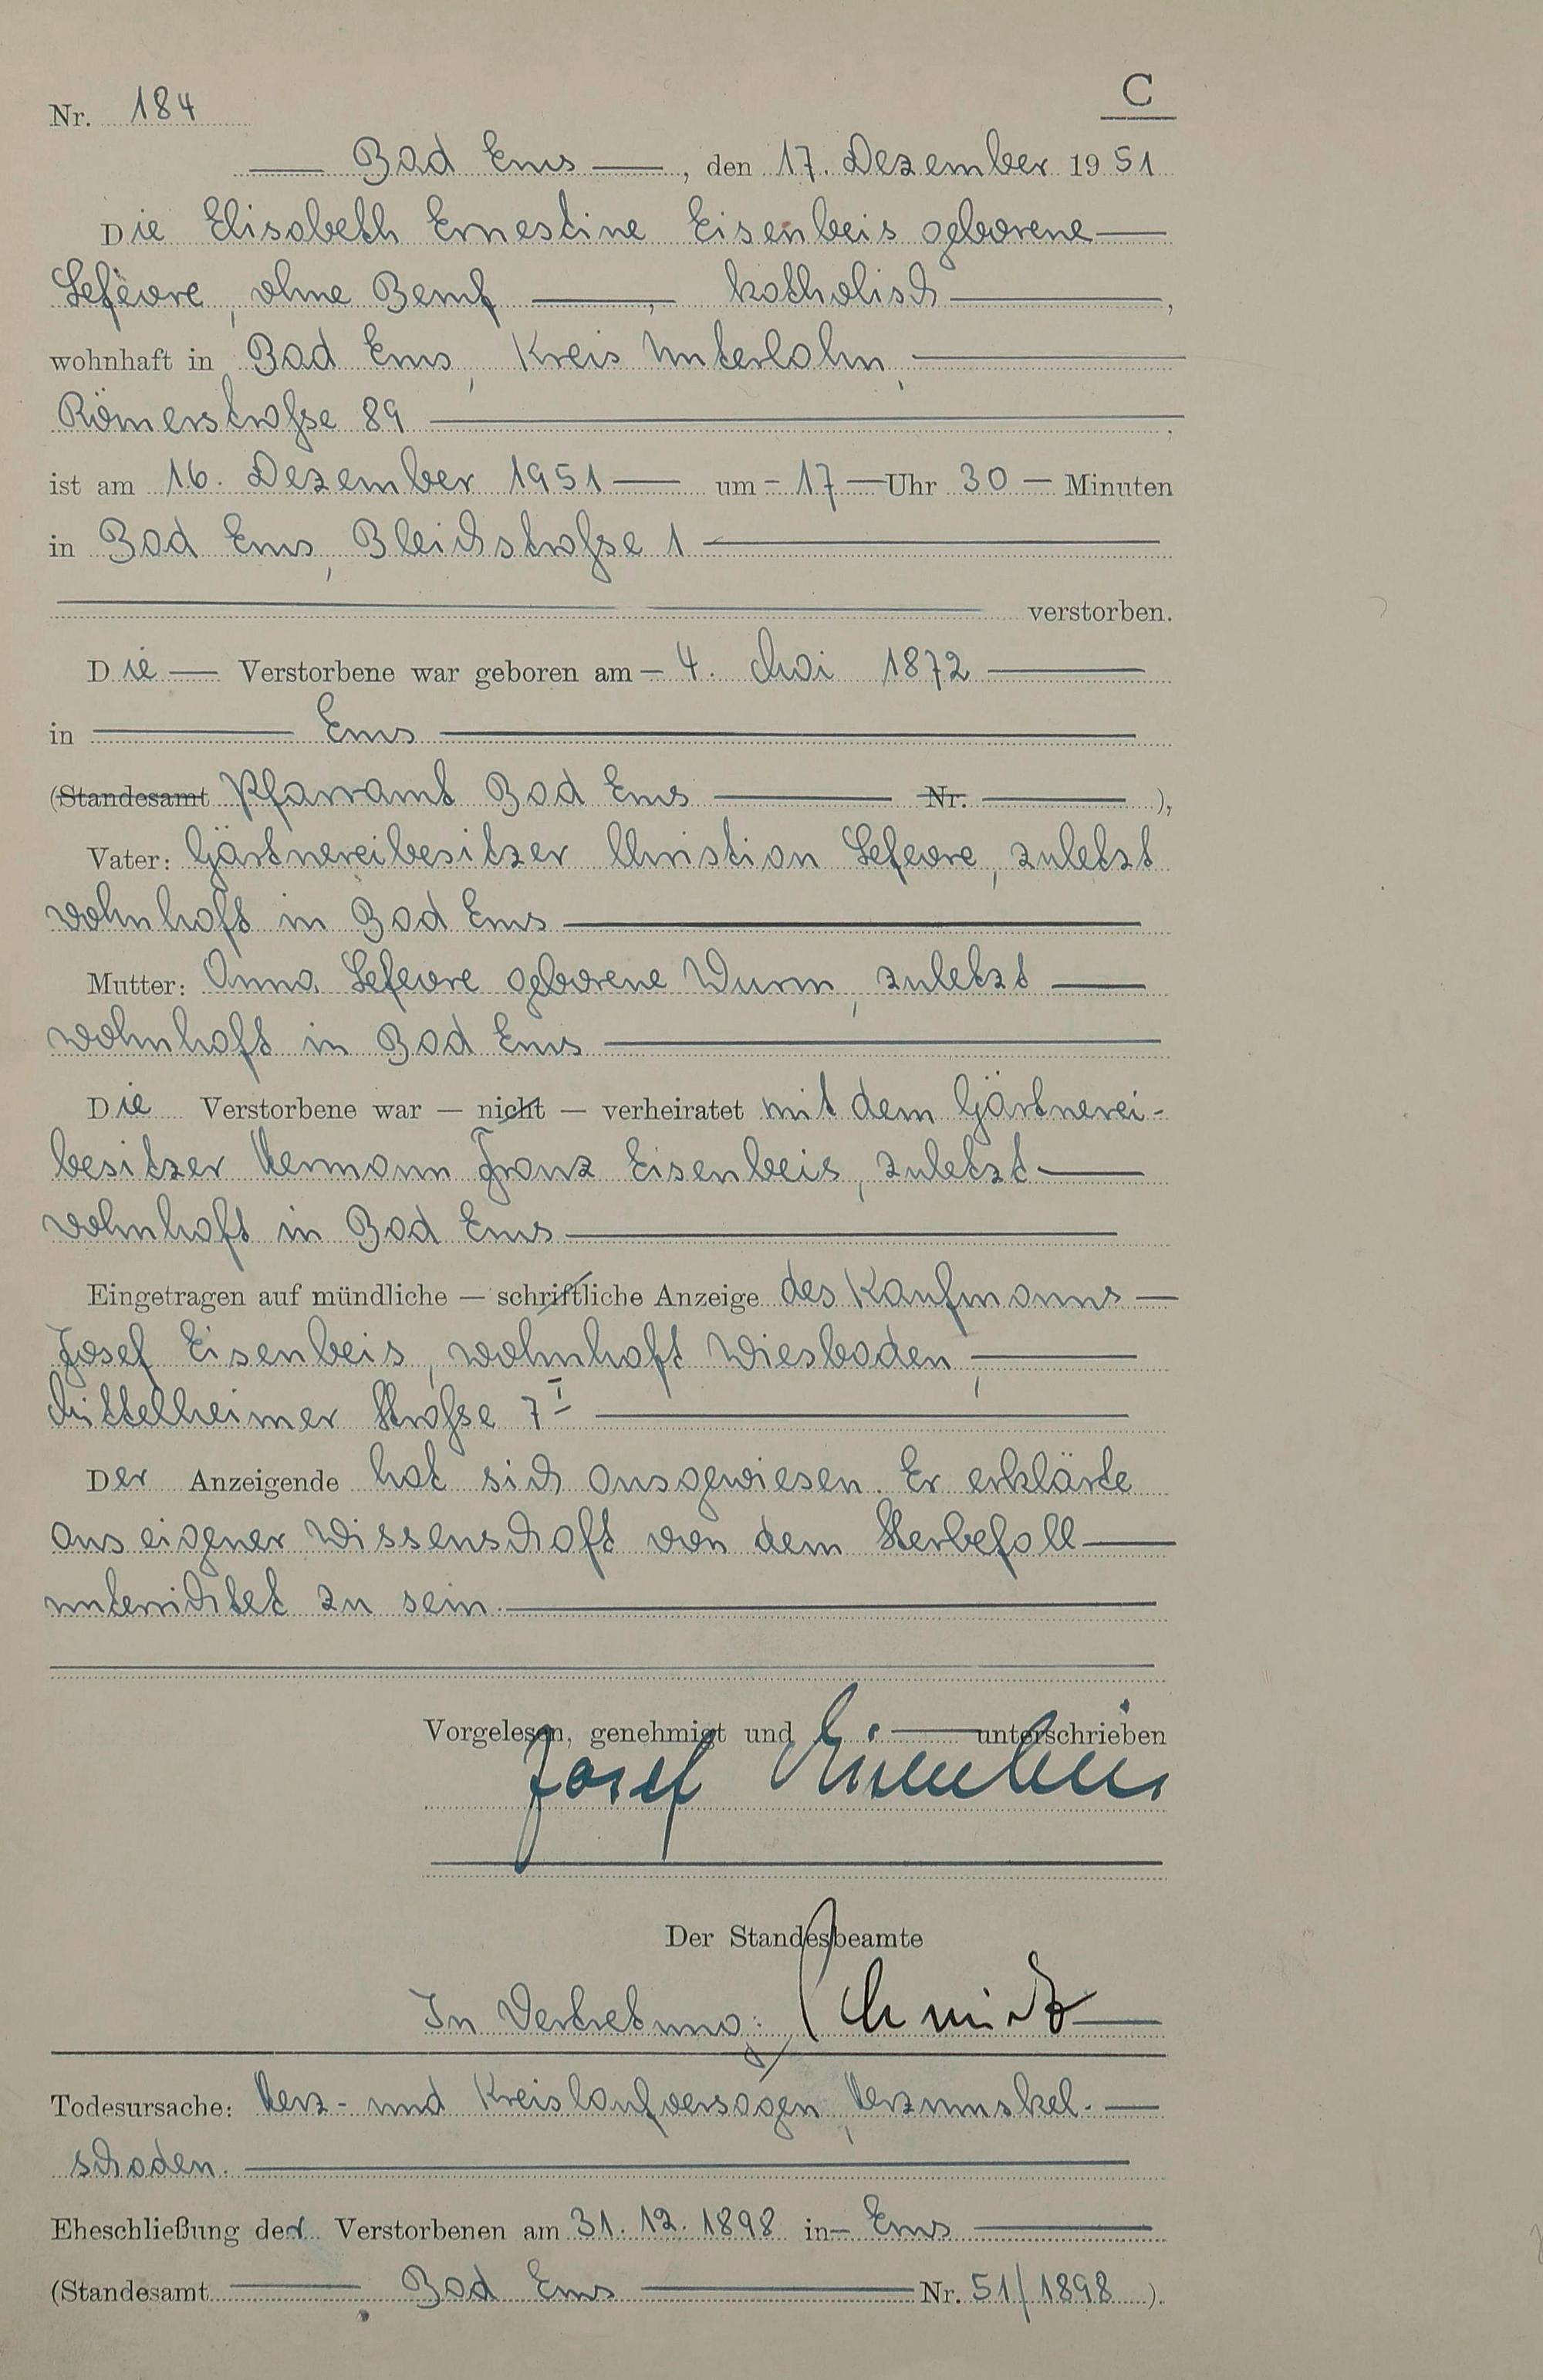 C
Nr. 184
Bad Ems, den 17. Dezember 1951
Die Elisabeth Ernestine Eisenbeis geborene
Lefèvre, ohne Beruf, katholisch,
wohnhaft in Bad Ems, Kreis Unterlahn,
Römerstraße 89
ist am 16. Dezember 1951 um 17 Uhr 30 Minuten
in Bad Ems, Bleichstraße 1
verstorben.
Die Verstorbene war geboren am 4. Mai 1872
in Ems
(Standesamt Pfarramt Bad Ems Nr. ),
Vater: Gärtnereibesitzer Christian Lefevre, zuletzt
wohnhaft in Bad Ems
Mutter: Anna Lefevre geborene Wurm, zuletzt
wohnhaft in Bad Ems
Die Verstorbene war — nicht — verheiratet mit dem Gärtnerei-
besitzer Hermann Franz Eisenbeis, zuletzt
wohnhaft in Bad Ems
Eingetragen auf mündliche — schriftliche Anzeige des Kaufmanns
Josef Eisenbeis, wohnhaft Wiesbaden,
Mittelheimer Straße 7 I
Der Anzeigende hat sich ausgewiesen. Er erklärte
aus eigener Wissenschaft von dem Sterbefall
unterrichtet zu sein.
Vorgelesen, genehmigt und unterschrieben
Josef Eisenbeis
Der Standesbeamte
In Vertretung: Schmidt
Todesursache: Herz- und Kreislaufversagen, Herzmuskel-
schaden.
Eheschließung der Verstorbenen am 31.12.1898 in Ems
(Standesamt Bad Ems Nr. 51/1898).